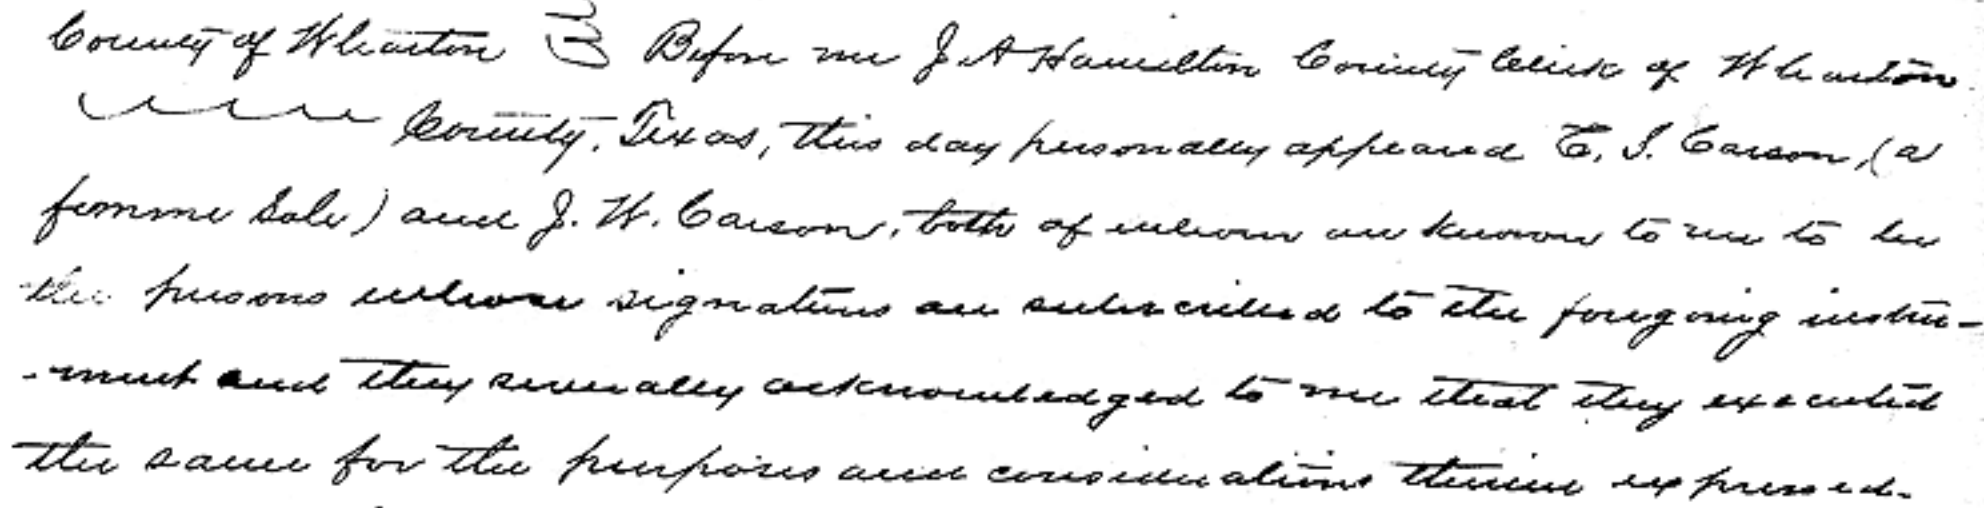 County of Wharton } Before me J A Hamilton County Clerk of Wharton
County, Texas, this day personally appeared E. I. Carson, (a
femme Sole) and J. W. Carson, both of whom are known to me to be
the persons whose signatures are subscribed to the foregoing instru-
-ment and they severally acknowledged to me that they executed
the same for the purposes and considerations therein expressed.